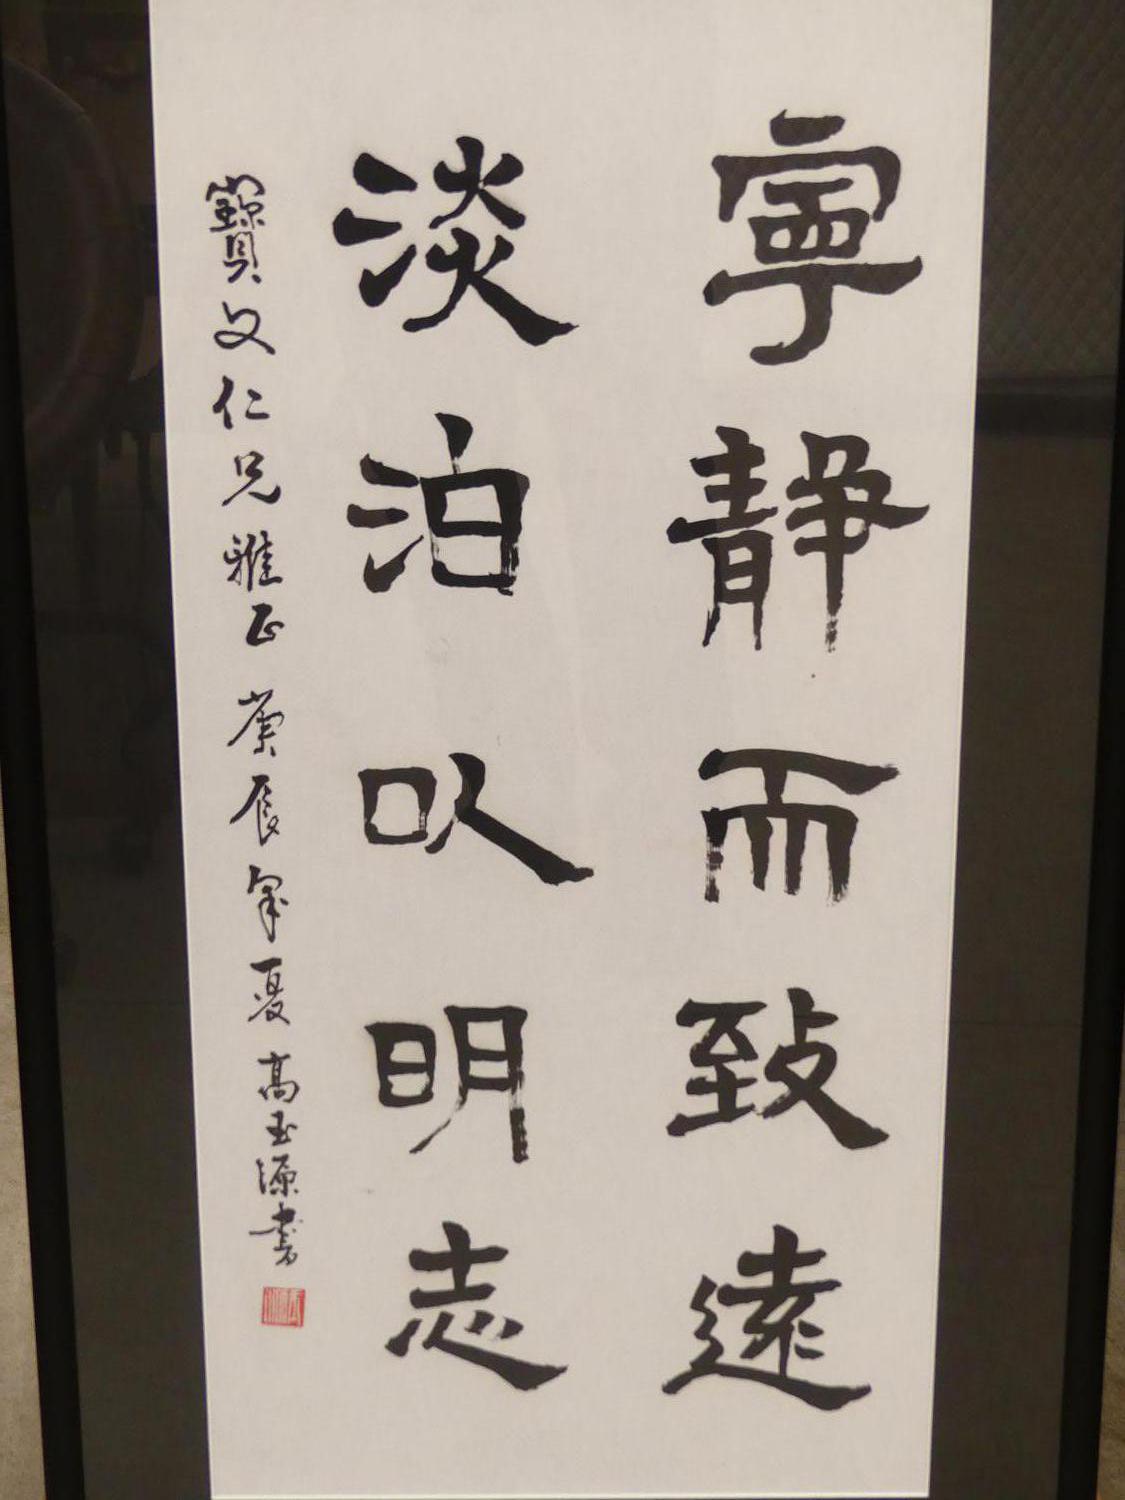 寧靜而致遠
淡泊以明志
寶文仁兄雅正 庚辰年夏 高玉源書